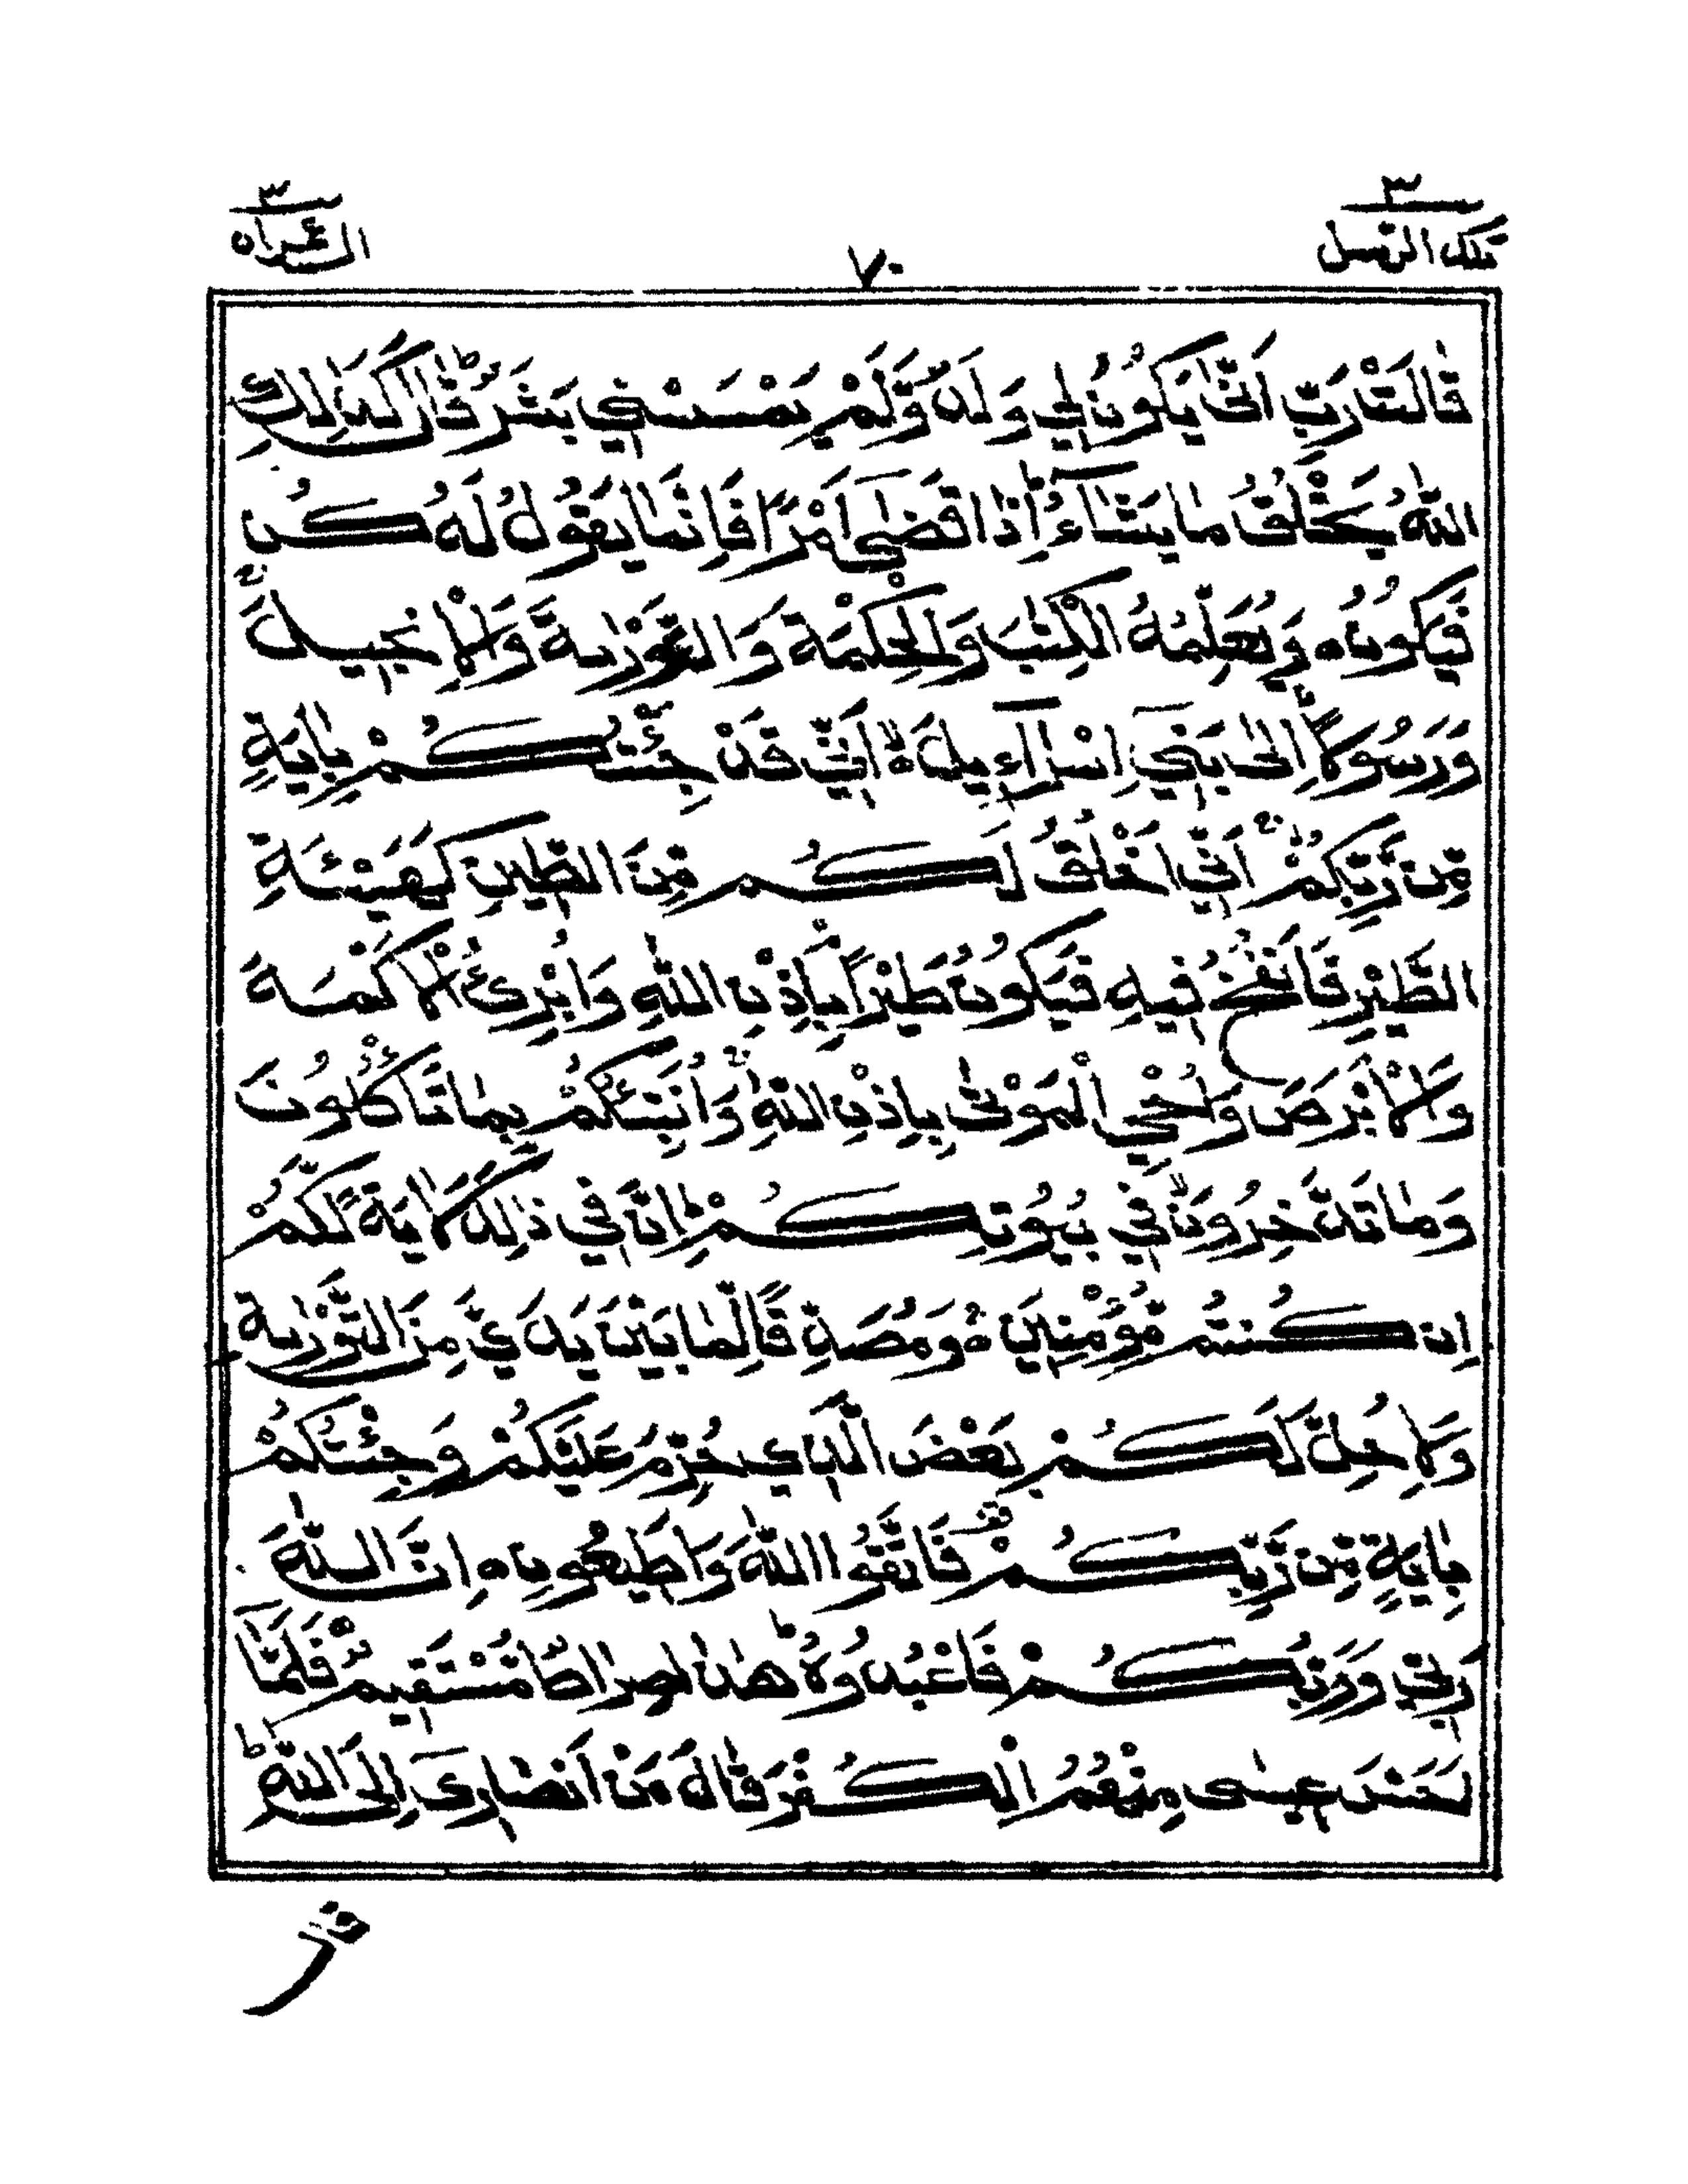 ٣
تلك الرسل
٧٠
٣
ال عمران
قَالَتْ رَبِّ اَنّٰى يَكُوْنُ لِيْ وَلَدٌ وَّلَمْ يَمْسَسْنِيْ بَشَرٌ ؕ قَالَ كَذٰلِكِ
اللّٰهُ يَخْلُقُ مَا يَشَآءُ ؕ اِذَا قَضٰٓى اَمْرًا فَاِنَّمَا يَقُوْلُ لَهٗ كُنْ
فَيَكُوْنُ ٥ وَيُعَلِّمُهُ الْكِتٰبَ وَالْحِكْمَةَ وَالتَّوْرٰىةَ وَالْاِنْجِيْلَ ۚ
وَرَسُوْلًا اِلٰى بَنِيْٓ اِسْرَآءِيْلَ ٥ۙ اَنِّيْ قَدْ جِئْتُكُمْ بِاٰيَةٍ
مِّنْ رَّبِّكُمْ ۙ اَنِّيْٓ اَخْلُقُ لَكُمْ مِّنَ الطِّيْنِ كَهَيْـَٔةِ
الطَّيْرِ فَاَنْفُخُ فِيْهِ فَيَكُوْنُ طَيْرًا بِاِذْنِ اللّٰهِ ۚ وَاُبْرِئُ الْاَكْمَهَ
وَالْاَبْرَصَ وَاُحْيِ الْمَوْتٰى بِاِذْنِ اللّٰهِ ۚ وَاُنَبِّئُكُمْ بِمَا تَاْكُلُوْنَ
وَمَا تَدَّخِرُوْنَ ۙ فِيْ بُيُوْتِكُمْ ؕ اِنَّ فِيْ ذٰلِكَ لَاٰيَةً لَّكُمْ
اِنْ كُنْتُمْ مُّؤْمِنِيْنَ ٥ۚ وَمُصَدِّقًا لِّمَا بَيْنَ يَدَيَّ مِنَ التَّوْرٰىةِ
وَلِاُحِلَّ لَكُمْ بَعْضَ الَّذِيْ حُرِّمَ عَلَيْكُمْ وَجِئْتُكُمْ
بِاٰيَةٍ مِّنْ رَّبِّكُمْ فَاتَّقُوا اللّٰهَ وَاَطِيْعُوْنِ ٥ اِنَّ اللّٰهَ
رَبِّيْ وَرَبُّكُمْ فَاعْبُدُوْهُ ؕ هٰذَا صِرَاطٌ مُّسْتَقِيْمٌ فَلَمَّآ
اَحَسَّ عِيْسٰى مِنْهُمُ الْكُفْرَ قَالَ مَنْ اَنْصَارِيْٓ اِلَى اللّٰهِ ؕ